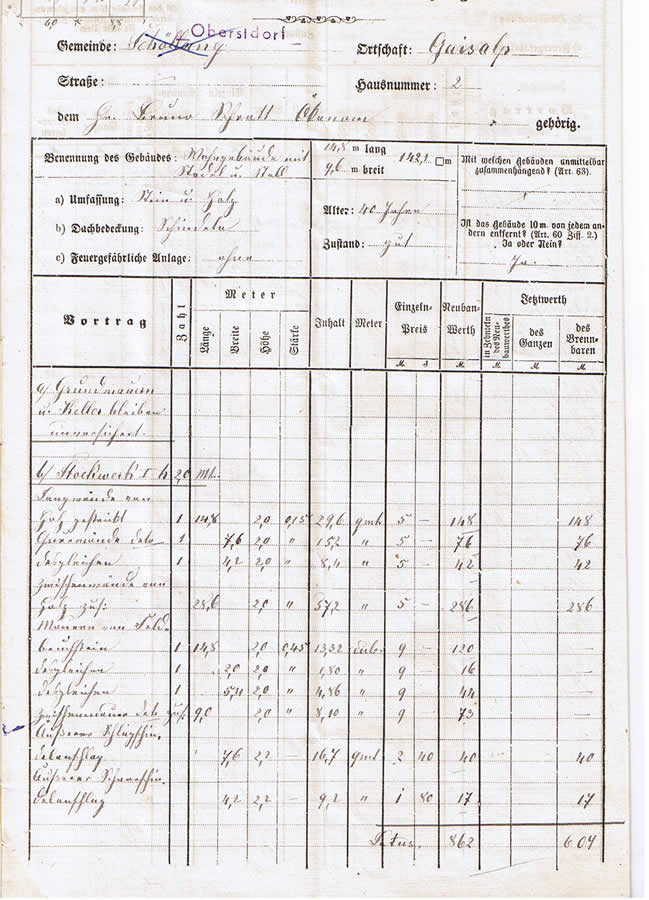 Oberstdorf
Gemeinde: Schöllang Ortschaft: Gaisalp
Straße: Hausnummer: 2
dem Hr. Bruno Schratt Ökonom gehörig.
Benennung des Gebäudes: Wohngebäude mit
Stadel u. Stall
14,8 m lang
9,6 m breit 142,1 □m
Mit welchen Gebäuden unmittelbar
zusammenhängend? (Art. 63.)
a) Umfassung: Stein u. Holz
b) Dachbedeckung: Schindeln
c) Feuergefährliche Anlage: ohne
Alter: 40 Jahre
Zustand: gut
Ist das Gebäude 10 m. von jedem an-
dern entfernt? (Art. 60 Ziff. 2.)
Ja oder Nein?
Ja.
Vortrag Zahl Meter Inhalt Meter Einzeln-Preis Neubau-Werth Jetztwerth
Länge Breite Höhe Stärke in Zehnteln des Neubauwerthes des Ganzen des Brennbaren
M. ₰ M. M. M.
a) Grundmauern
u. Keller bleiben
unversichert.
b) Stockwerk I h 2,0 Mt.
Langwände von
Holz gestrickt 1 14,8 2,0 0,15 29,6 qmt. 5 — 148 148
Querwände deto 1 7,6 2,0 " 15,2 " 5 — 76 76
desgleichen 1 4,2 2,0 " 8,4 " 5 — 42 42
Zwischenwände von
Holz zus: 28,6 2,0 " 57,2 " 5 — 286 286
Mauern von Feld-
bruchstein 1 14,8 2,0 0,45 13,32 cub. 9 — 120 —
desgleichen 1 2,0 2,0 " 1,80 " 9 16 —
desgleichen 1 5,4 2,0 " 4,86 " 9 44 —
Zwischenmauer deto zus. 9,0 2,0 " 8,10 " 9 73 —
Äußerer
delanschlag 7,6 2,2 — 16,7 qmt. 2 40 40 40
Äußerer
delanschlag 4,2 2,2 — 9,2 " 1 80 17 17
862 604